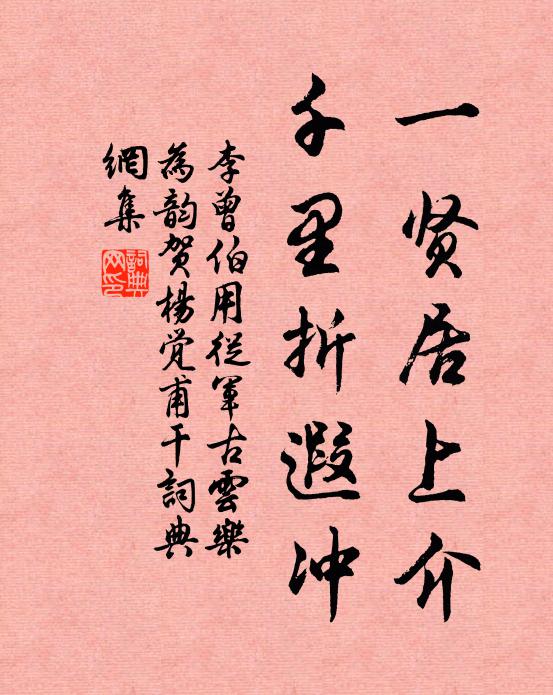 一贤居上介
千里折遐冲
李曾伯用從軍古雲樂
為韵贺楊觉甫干詞典
網集
詞典網印